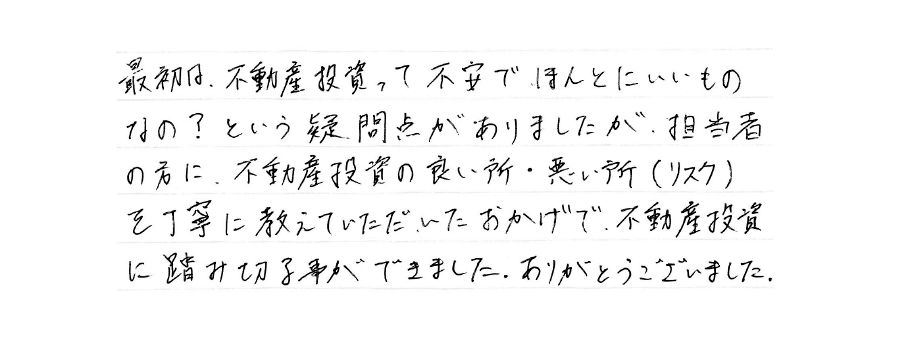 最初は、不動産投資って不安でほんとにいいもの
なの?という疑問点がありましたが、担当者
の方に、不動産投資の良い所・悪い所(リスク)
を丁寧に教えていただいたおかげで、不動産投資
に踏み切る事ができました。ありがとうございました。